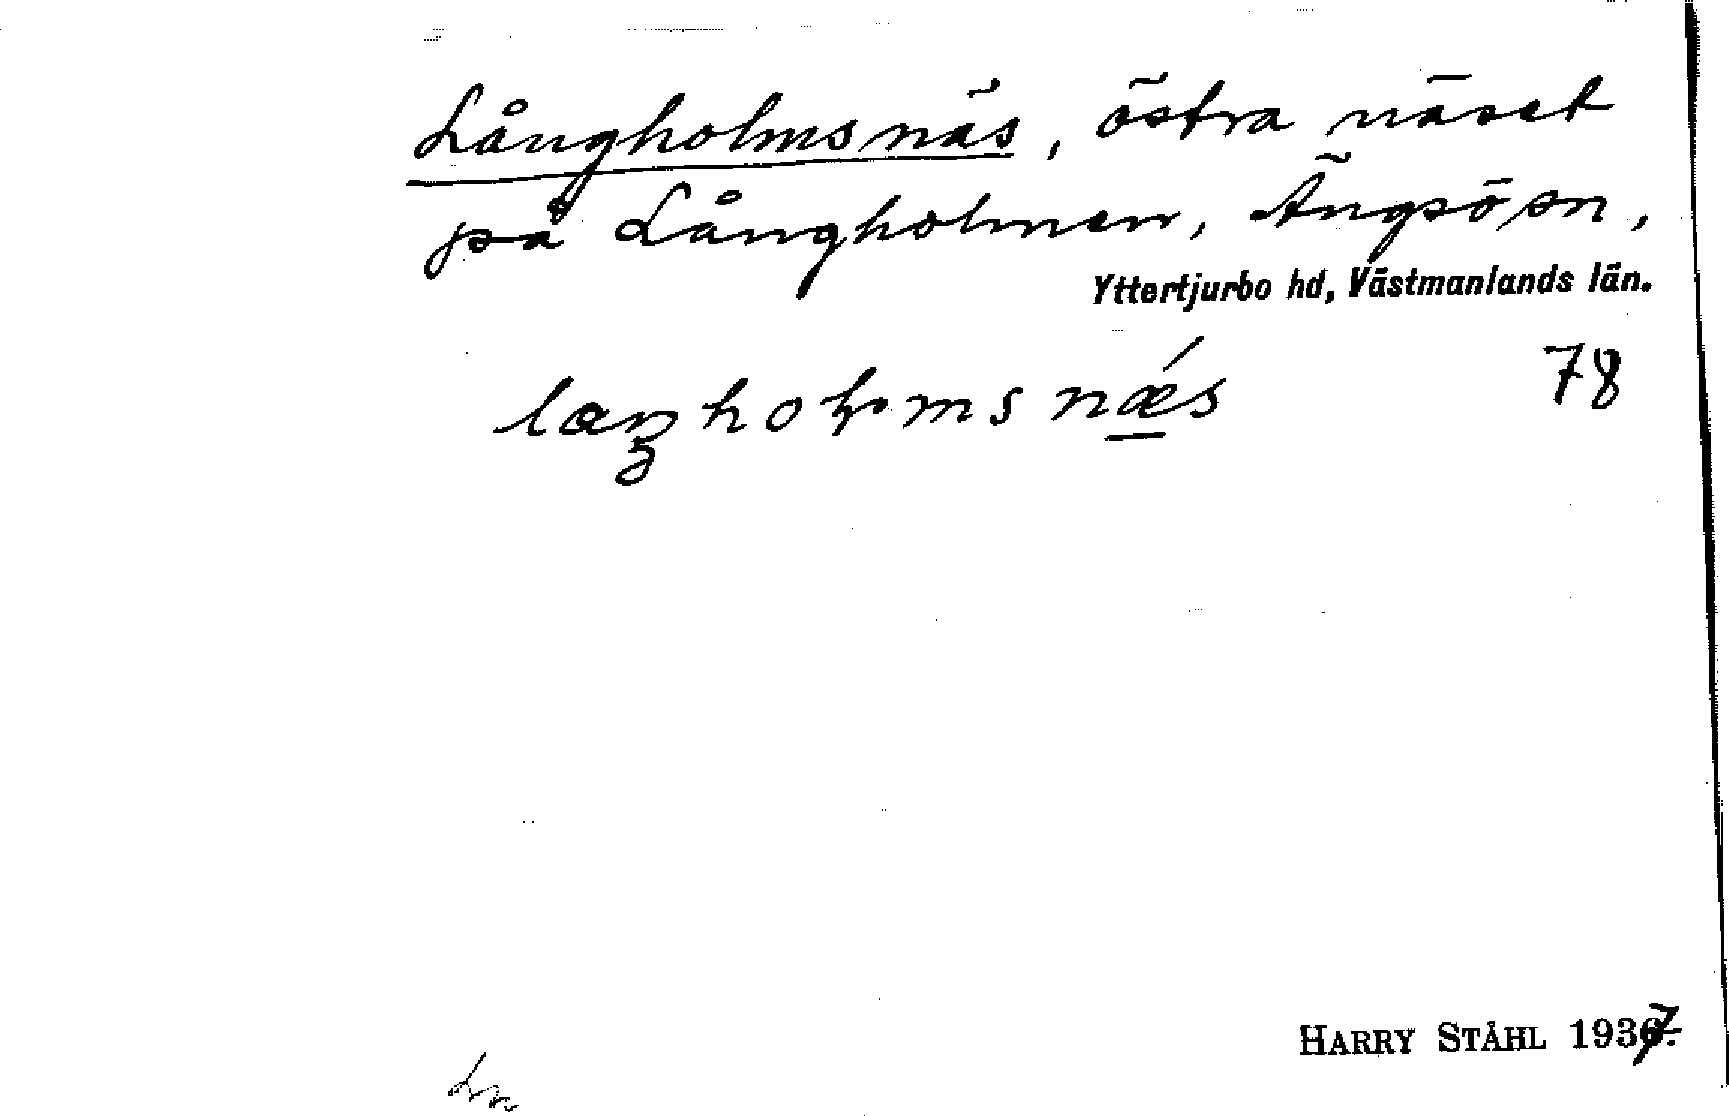 Långholmsnäs, östra näset
på Långholmen, Ängsö sn,
Yttertjurbo hd, Västmanlands län.
78
HARRY STÅHL 1937.